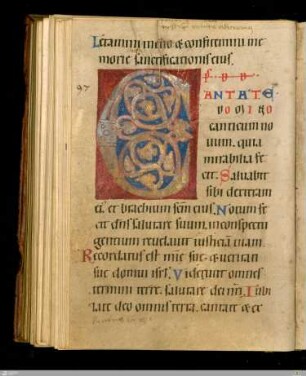 Letamini iusti & confitemini me
morie sanctificationis eius.
97
ANTATE
DOMINO
canticum no
uum. quia
mirabilia fe
cit. Saluabit
sibi dextera
ei. & brachium scm eius. Notum fe
cit dns salutare suum. inconspectu
gentium reuelauit iusticiam suam.
Recordatus est mie sue & ueritati
sue domui isrl. Viderunt omnes
termini terre. salutare dei nri. Iubi
late deo omnis terra. cantate & ex